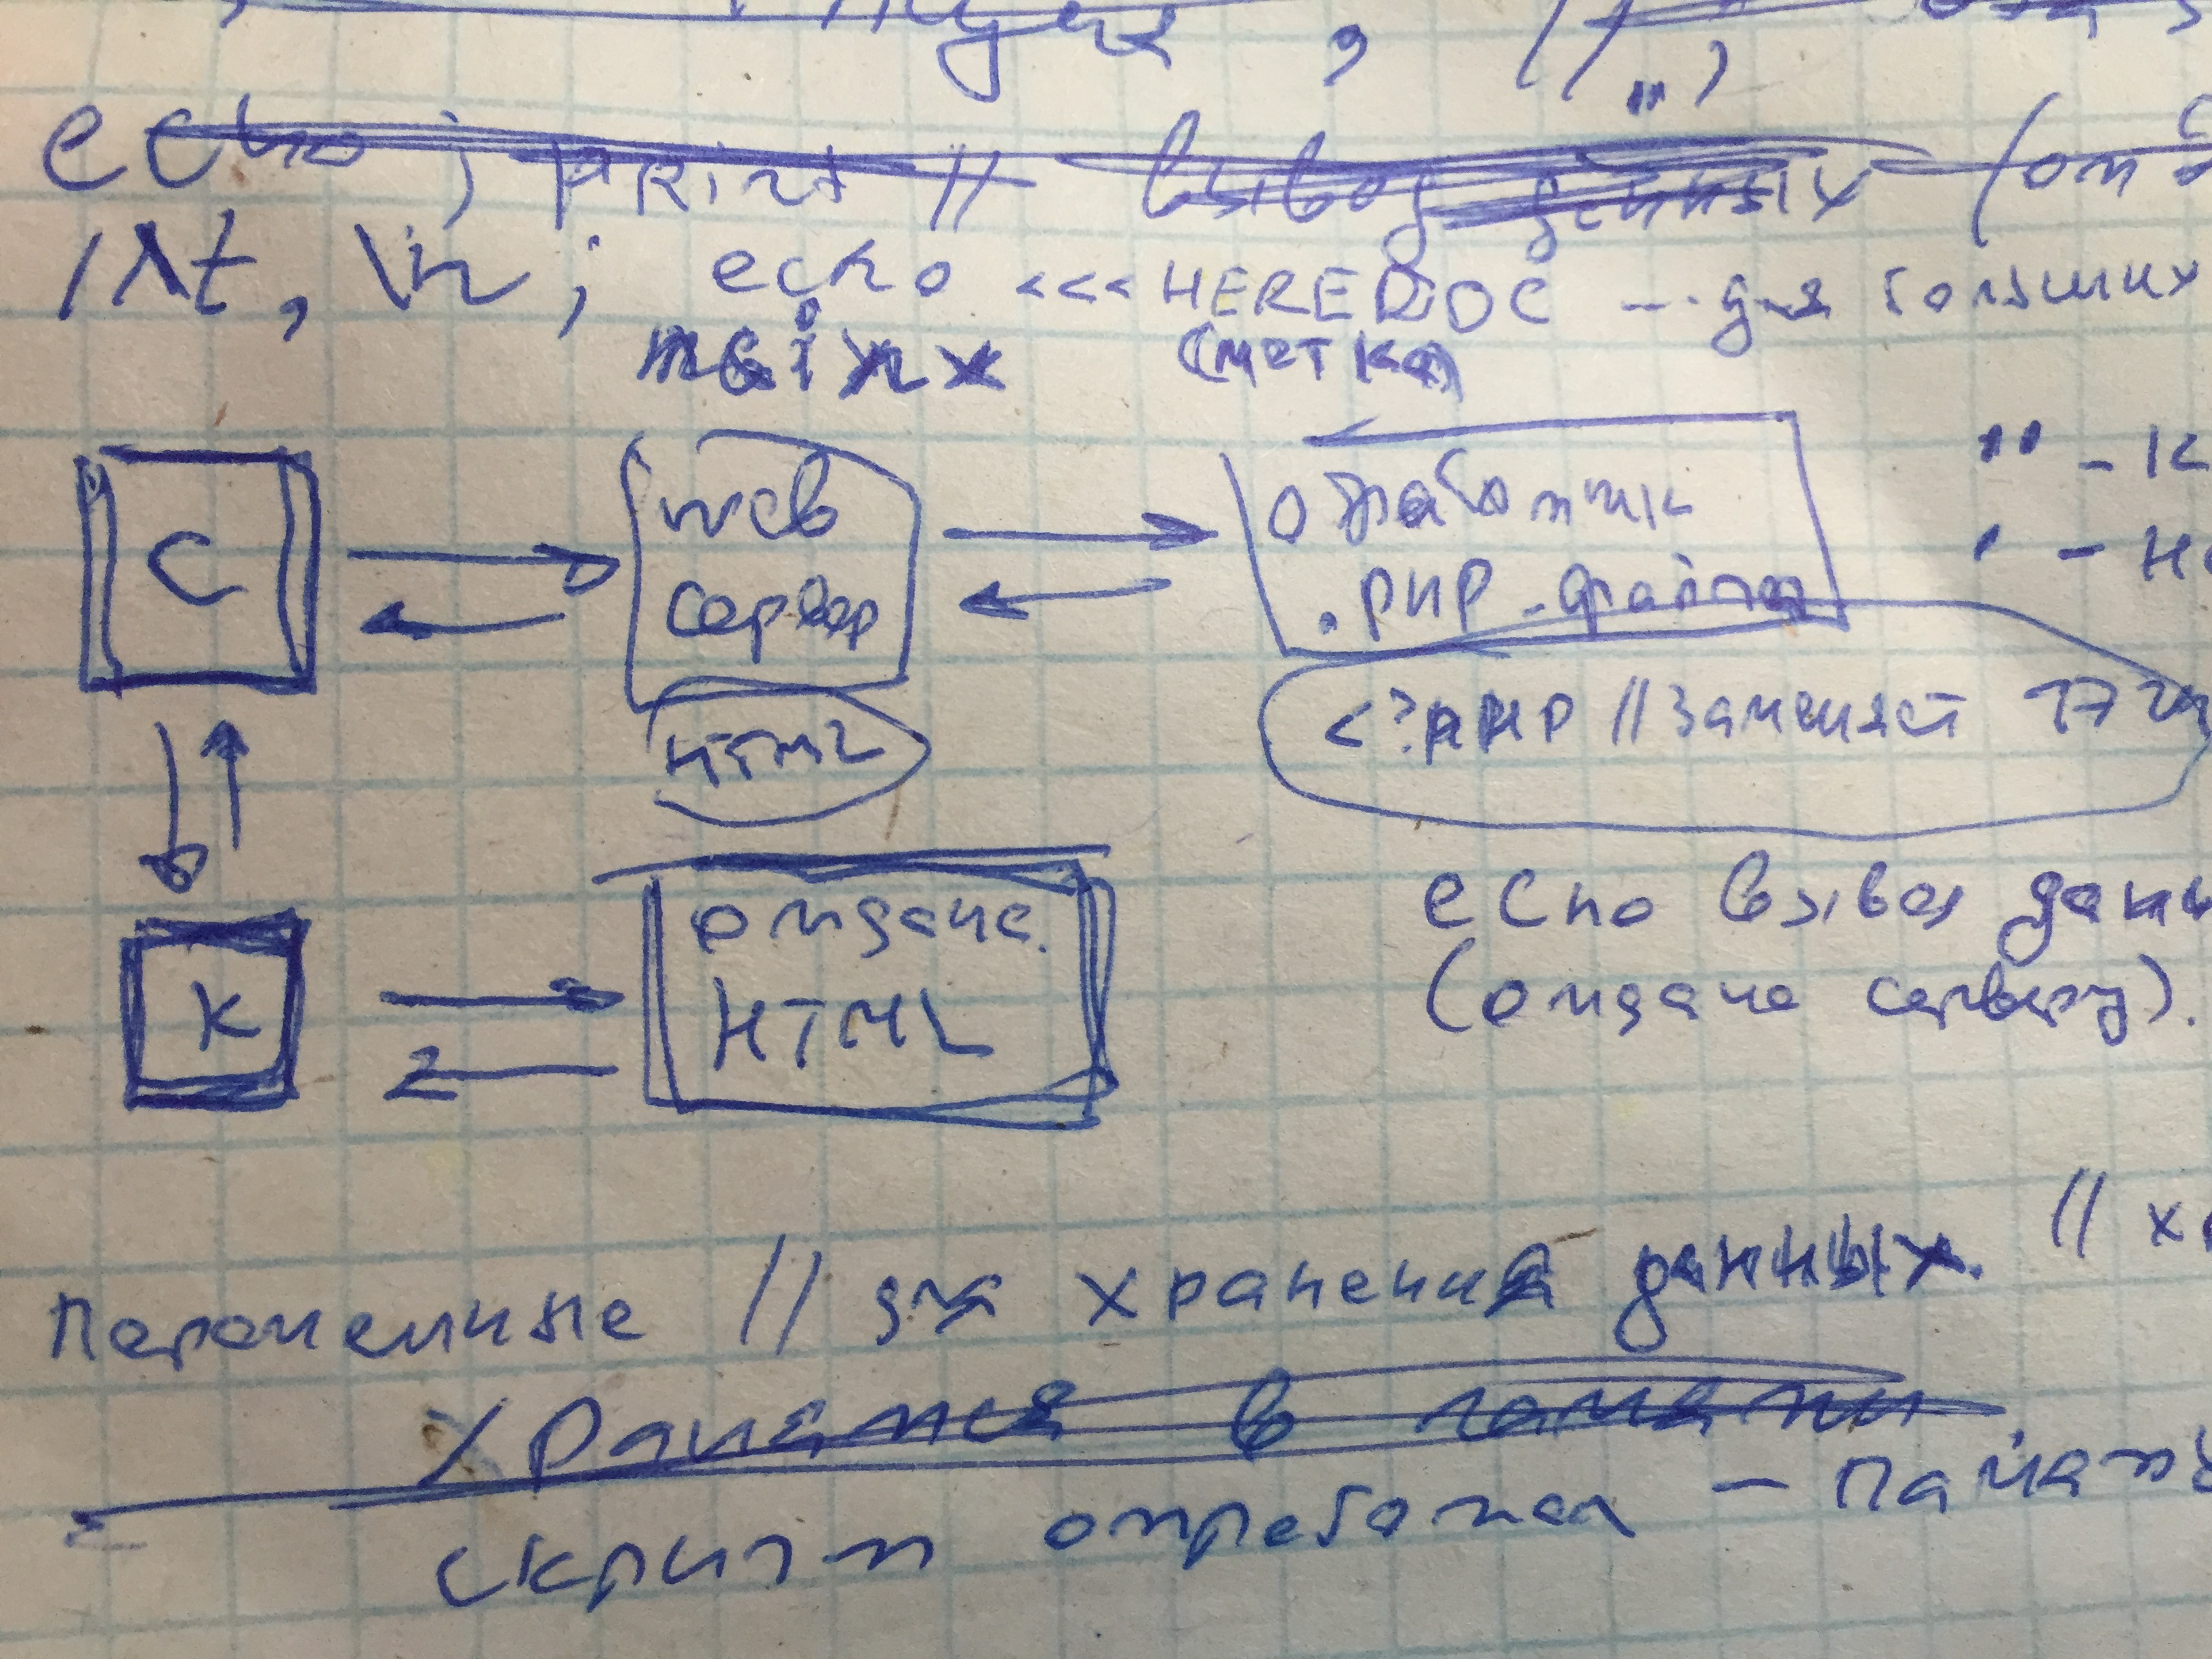 echo ; print // вывод данных (от
\t, \n ; echo <<< HEREDOC — для больших
nginx (метка)
C
web
сервер
HTML
обработчик
.PHP - файла
" - К
' - Не
<?PHP // замещает
echo вывод данн
(отдача серверу).
К
отдача
HTML
Переменные // для хранения данных. // хр
хранятся в памяти
скрипт отработал — память